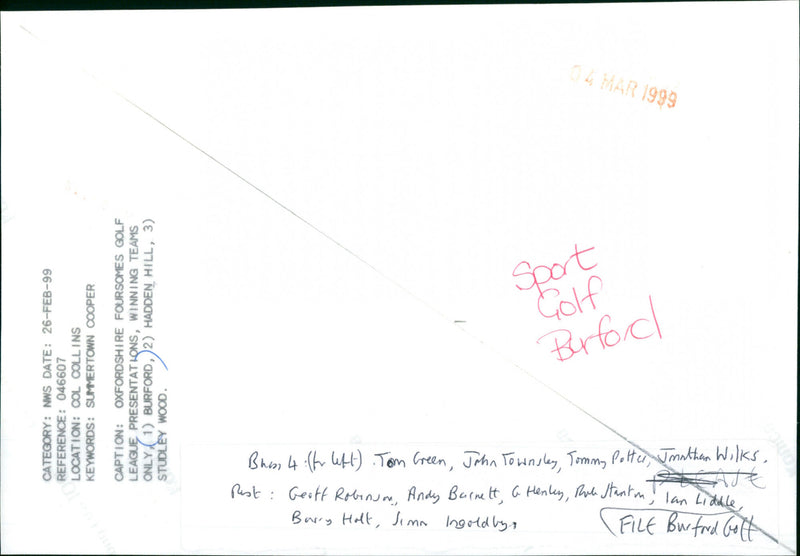 04 MAR 1999
Sport
Golf
Burford
CATEGORY: NWS DATE: 26-FEB-99
REFERENCE: 046607
LOCATION: COL COLLINS
KEYWORDS: SUMMERTOWN COOPER
CAPTION: OXFORDSHIRE FOURSOMES GOLF
LEAGUE PRESENTATIONS, WINNING TEAMS
ONLY, (1) BURFORD, 2) HADDEN HILL, 3)
STUDLEY WOOD.
4 (fr left). Tom Green, John Townsley, Tommy Potter, Jonathan Wilks.
Geoff Robinson, Andy Barnett, G Henley, Stanton, Ian Liddle,
Barry Holt, Simon Ingoldby,
FILE Burford Golf